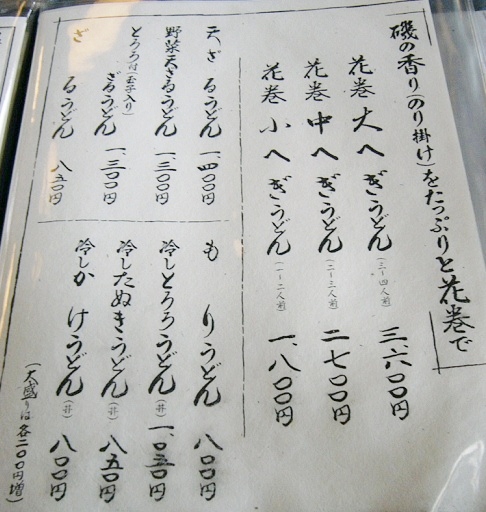 磯の香り(のり掛け)をたっぷりと花巻で
花巻 大へぎうどん (三〜四人前) 三、六〇〇円
花巻 中へぎうどん (二〜三人前) 二、七〇〇円
花巻 小へぎうどん (一〜二人前) 一、八〇〇円
天ざるうどん 一、四〇〇円
野菜天ざるうどん 一、三〇〇円
とろろ付(玉子入り)ざるうどん 一、三〇〇円
ざるうどん 八五〇円
もりうどん 八〇〇円
冷しとろろうどん (丼) 一、〇五〇円
冷したぬきうどん (丼) 八五〇円
冷しかけうどん (丼) 八〇〇円
(大盛りは各二〇〇円増)